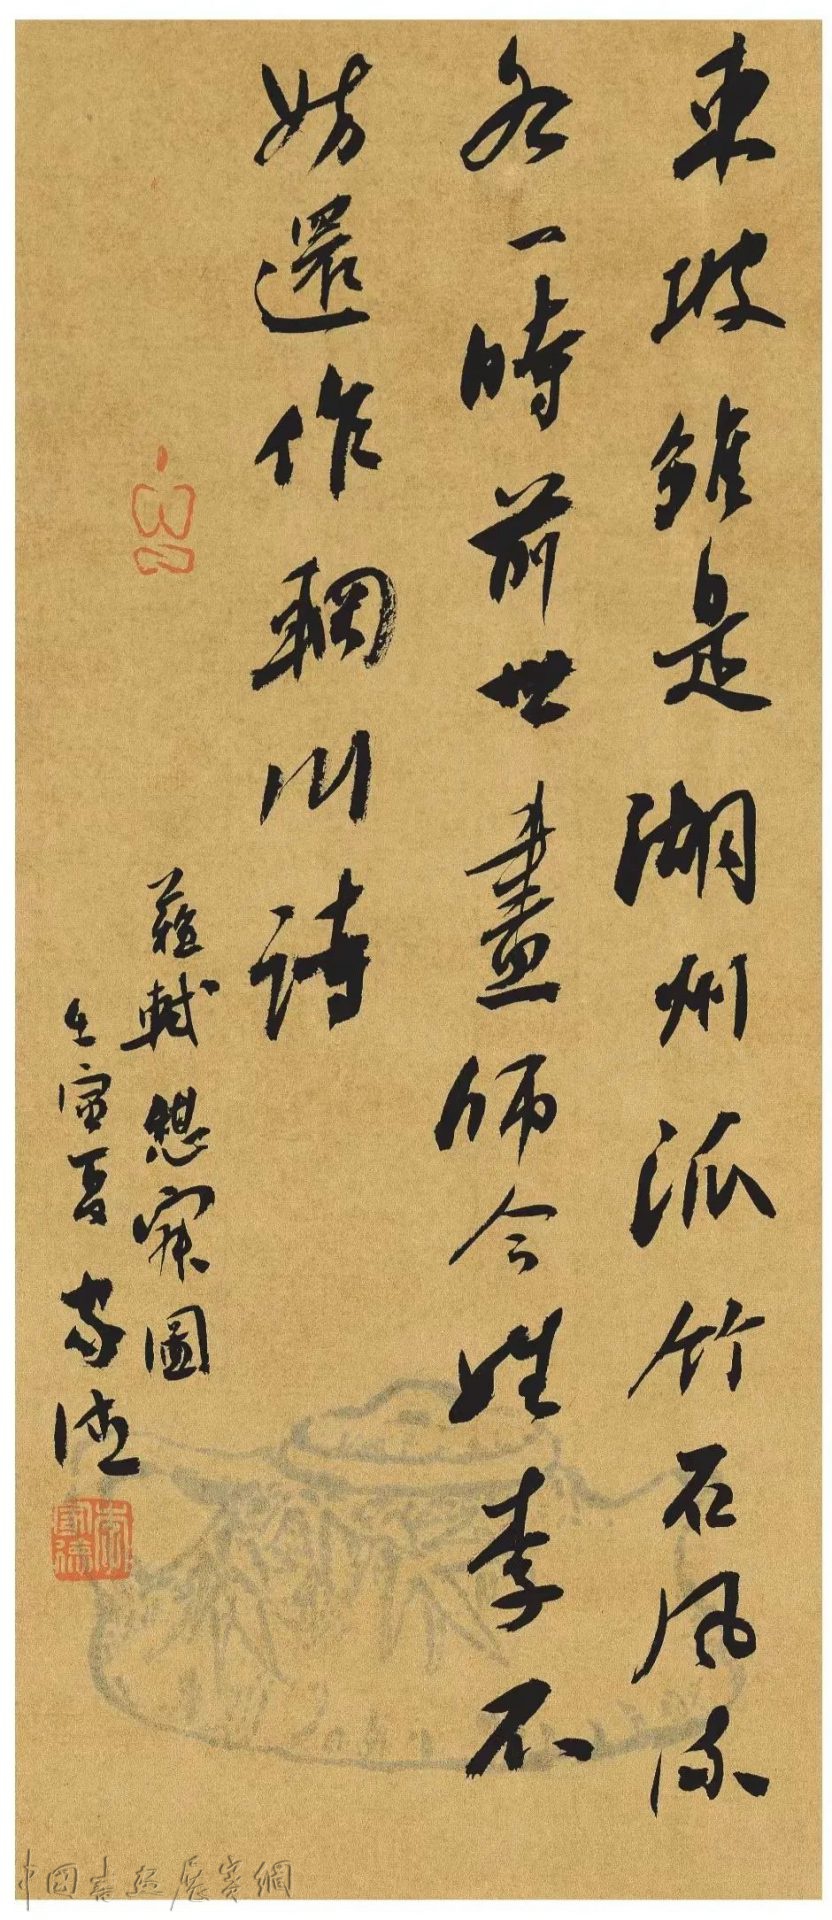 東坡雖是湖州派竹石風流
各一時前世畫師今姓李不
妨還作輞川詩
蘇軾憩寂圖
壬寅夏 李家德
李家德
中國書畫展賽網